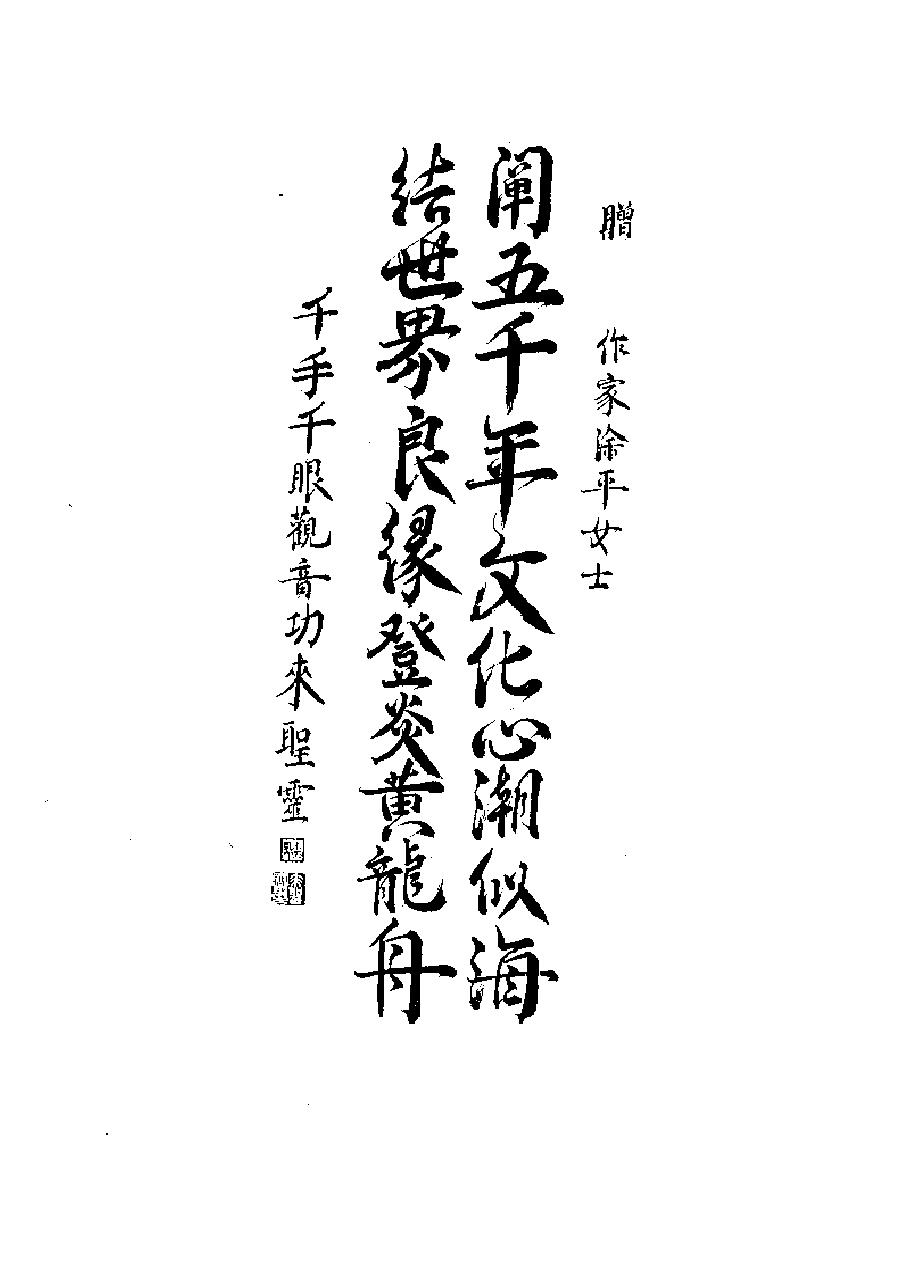 贈 作家淪平女士
闡五千年文化心潮似海
結世界良緣登炎黄龍舟
千手千眼觀音功來聖靈